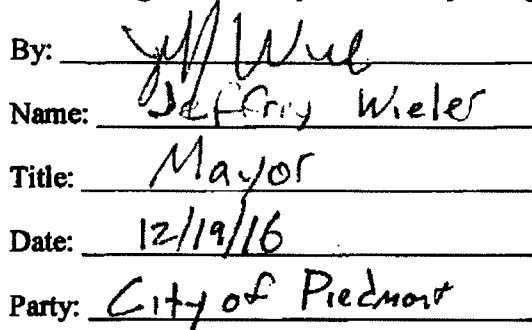 By: Jeff Wiel
Name: Jeffrey Wieler
Title: Mayor
Date: 12/19/16
Party: City of Piedmont